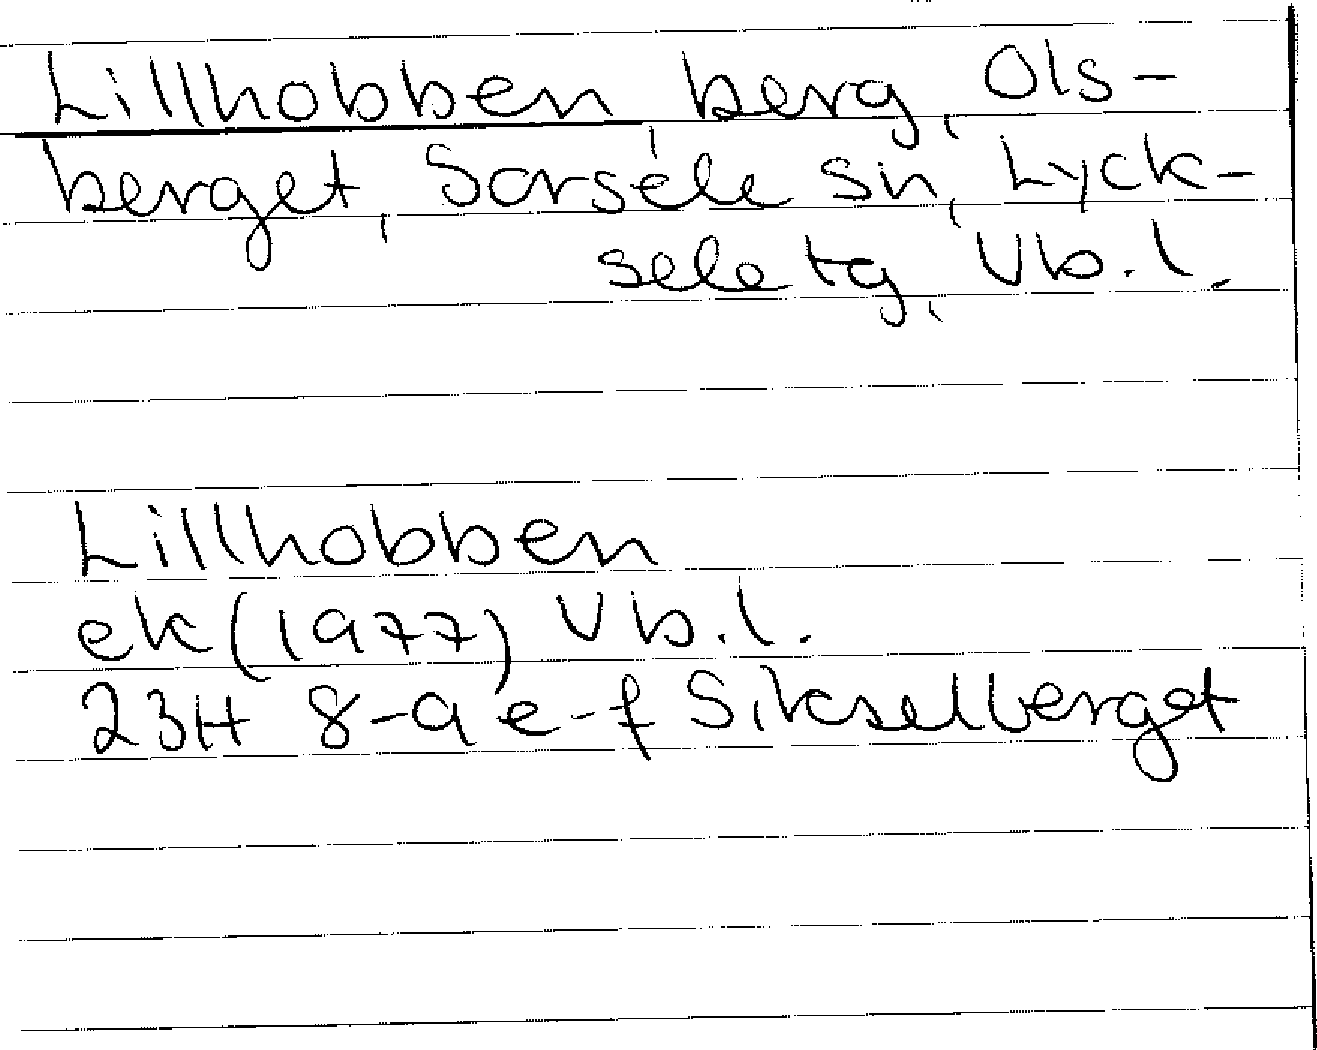 Lillhobben, berg, Ols-
berget, Sorsele sn, Lyck-
sele tg, Vb. l.
Lillhobben
ek (1977) Vb. l.
23H 8-9 e-f Sikselberget